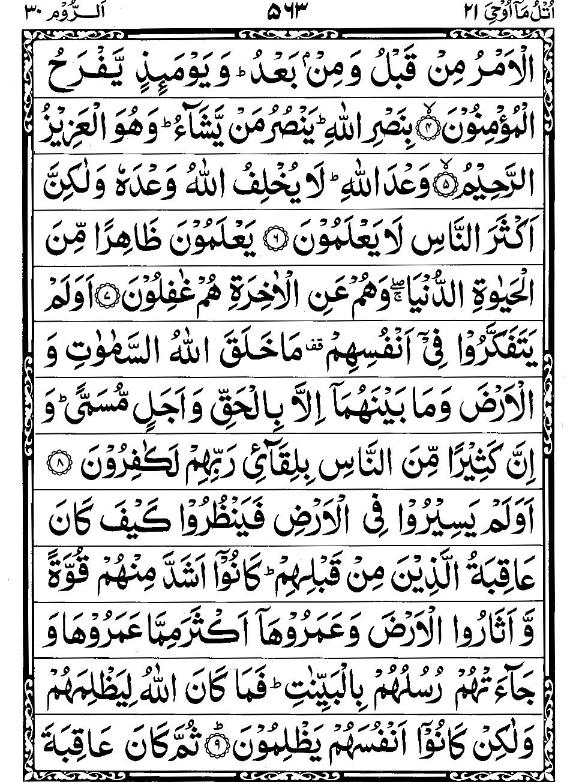 اُتْلُ مَآ اُوْحِیَ ۲۱ ۵۶۳ اَلرُّوْم ۳۰
الْاَمْرُ مِنْ قَبْلُ وَ مِنْۢ بَعْدُ ؕ وَ یَوْمَىِٕذٍ یَّفْرَحُ
الْمُؤْمِنُوْنَ ۙ﴿۴﴾ بِنَصْرِ اللّٰهِ ؕ یَنْصُرُ مَنْ یَّشَآءُ ؕ وَ هُوَ الْعَزِیْزُ
الرَّحِیْمُ ۙ﴿۵﴾ وَعْدَ اللّٰهِ ؕ لَا یُخْلِفُ اللّٰهُ وَعْدَهٗ وَ لٰكِنَّ
اَكْثَرَ النَّاسِ لَا یَعْلَمُوْنَ ﴿۶﴾ یَعْلَمُوْنَ ظَاهِرًا مِّنَ
الْحَیٰوةِ الدُّنْیَا ۖۚ وَ هُمْ عَنِ الْاٰخِرَةِ هُمْ غٰفِلُوْنَ ﴿۷﴾ اَوَ لَمْ
یَتَفَكَّرُوْا فِیْۤ اَنْفُسِهِمْ ۫ مَا خَلَقَ اللّٰهُ السَّمٰوٰتِ وَ
الْاَرْضَ وَ مَا بَیْنَهُمَاۤ اِلَّا بِالْحَقِّ وَ اَجَلٍ مُّسَمًّی ؕ وَ
اِنَّ كَثِیْرًا مِّنَ النَّاسِ بِلِقَآئِ رَبِّهِمْ لَكٰفِرُوْنَ ﴿۸﴾
اَوَ لَمْ یَسِیْرُوْا فِی الْاَرْضِ فَیَنْظُرُوْا كَیْفَ كَانَ
عَاقِبَةُ الَّذِیْنَ مِنْ قَبْلِهِمْ ؕ كَانُوْۤا اَشَدَّ مِنْهُمْ قُوَّةً
وَّ اَثَارُوا الْاَرْضَ وَ عَمَرُوْهَاۤ اَكْثَرَ مِمَّا عَمَرُوْهَا وَ
جَآءَتْهُمْ رُسُلُهُمْ بِالْبَیِّنٰتِ ؕ فَمَا كَانَ اللّٰهُ لِیَظْلِمَهُمْ
وَ لٰكِنْ كَانُوْۤا اَنْفُسَهُمْ یَظْلِمُوْنَ ؕ﴿۹﴾ ثُمَّ كَانَ عَاقِبَةَ